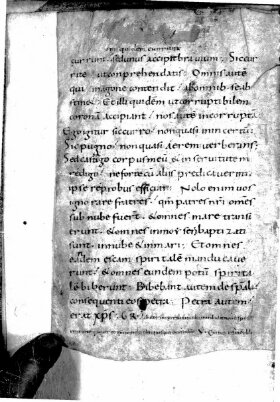 currunt. sed unus accipit bravium. Sic cur
rite ut comprehendatis. Omnis autē
qui in agone contendit. ab omnib; se ab
stinet. Et illi quidem ut corruptibilem
coronā accipiant. nos autē incorruptā.
Ego igitur sic curro. non quasi in incertū.
Sic pugno. non quasi aerem verberans.
Sed castigo corpus meū & in servitutem
redigo. ne forte cū aliis predicaverim.
ipse reprobus efficiar. Nolo enim vos
ignorare fratres. qm̄ patres nr̄i omēs
sub nube fuer̄. & omnes mare transi
erunt. & omnes in moysen baptizati
sunt. in nube & in mari. Et omnes
eandem escam spiritalē manducave
runt. & omnes eundem potū spirita
lē biberunt. Bibebant autem de spāli
consequenti eos petra. Petra autem
erat xp̄s.